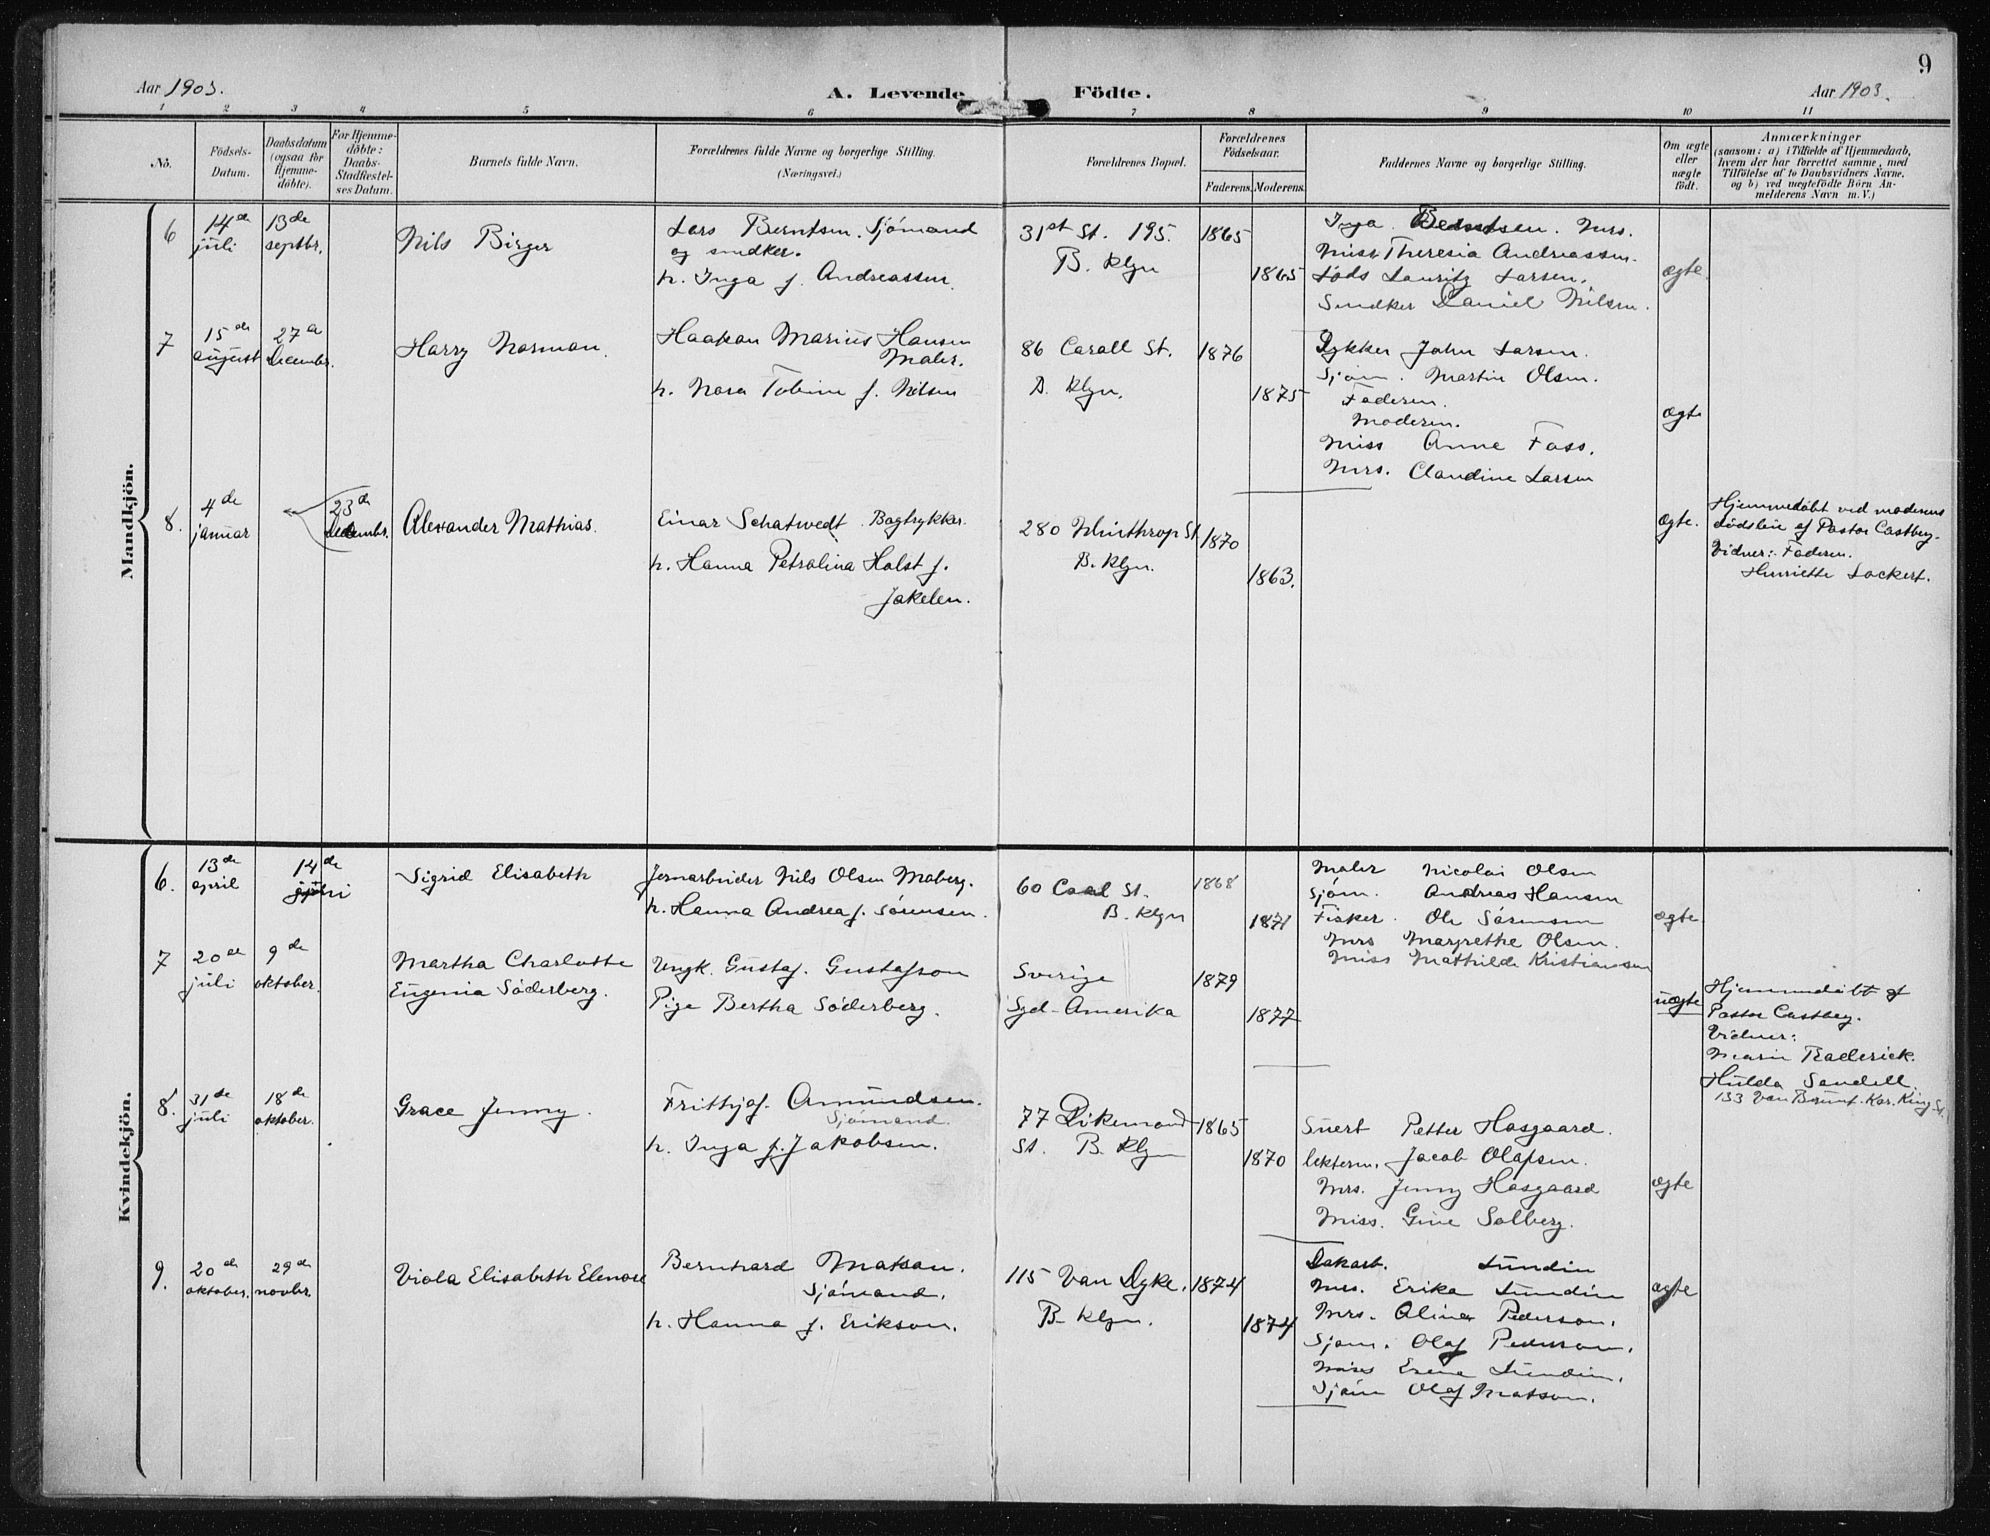 9
Aar 1903.
A. Levende
Födte.
Aar 1903.
1 2 3 4 5 6 7 8 9 10 11
Nö.
Födsels-
Datum.
Daabsdatum
(ogsaa for
Hjemme-
döbte).
For Hjemme-
döbte:
Daabs-
Stadfæstel-
ses Datum.
Barnets fulde Navn.
Forældrenes fulde Navne og borgerlige Stilling.
(Næringsvei.)
Forældrenes Bopæl.
Forældrenes
Födselsaar.
Faderens. Moderens.
Faddernes Navne og borgerlige Stilling.
Om ægte
eller
uægte
födt.
Anmærkninger
(saasom: a) i Tilfælde af Hjemmedaab,
hvem der har forrettet samme, med
Tilföielse af to Daabsvidners Navne,
og b) ved uægtefödte Börn An-
melderens Navn m. V.)
Mandkjön.
6
14de
juli
13de
septbr.
Nils Birger
Lars Berntsen. Sjömand
og snedker.
h. Inga f. Andreassen.
31st St. 195.
B. Klyn
1865
1865
Inga Berntsen. Mrs.
Miss Theresia Andreassen.
Lods Lauritz Larsen.
Snedker Daniel Nilsen.
ægte.
7
15de
august
27de
Decembr.
Harry Norman.
Haakon Marius Hansen
Maler.
h. Nora Tobine f. Nilsen
86 Carall St.
B. Klyn.
1876
1875
Dykker John Larsen.
Sjöm. Martin Olsen.
Faderen.
Moderen.
Miss Anne Foss.
Mrs. Claudine Larsen
ægte
8.
4de
januar
23de
Decembr.
Alexander Mathias.
Einar Schatvedt. Bogtrykker.
h. Hanna Petrolina Holst f.
Jakelen.
280 Winthrop St
B. Klyn.
1870
1863.
ægte.
Hjemmedöbt ved moderens
dödsleie af Pastor Castberg.
Vidner: Faderen.
Henriette Lockert.
Kvindekjön.
6.
13de
april
14de
juli
Sigrid Elisabeth
Jernarbeider Nils Olsen Moberg.
h. Hanna Andrea f. Sörensen.
60 Coal St.
B. Klyn
1868
1871
Maler Nicolai Olsen
Sjöm. Andreas Hansen
Fisker. Ole Sörensen
Mrs Margrethe Olsen.
Miss Mathilde Kristiansen
ægte
7
20de
juli
9de
oktober.
Martha Charlotte
Eugenia Söderberg.
Ungk. Gustaf. Gustafson
Pige Bertha Söderberg.
Sverige
Syd-Amerika
1879
1877
uægte
Hjemmedöbt af
Pastor Castberg.
Vidner:
Marie Raderick.
Hulda Sandell.
133 Van Brunt. Kor. King St.
8.
31de
juli
18de
oktober.
Grace Jenny.
Frithjof. Amundsen.
Sjömand.
h. Inga f. Jakobsen.
77 Dikemand
St. B. Klyn
1865
1870
Petter Hasgaard.
Jacob Olafsen.
Mrs. Jenny Hasgaard
Miss. Gine Solberg.
ægte
9.
20de
oktober.
29de
novbr.
Viola Elisabeth Elenore
Bernhard Matson.
Sjömand.
h. Hanna f. Erikson.
115 Van Dyke.
B. Klyn.
1874
1874
Dokarb. Lundin
Mrs. Erika Lundin
Mrs. Alina Pederson.
Sjöm. Olaf Pederson.
Miss Lundin.
Sjöm Olaf Matson.
ægte